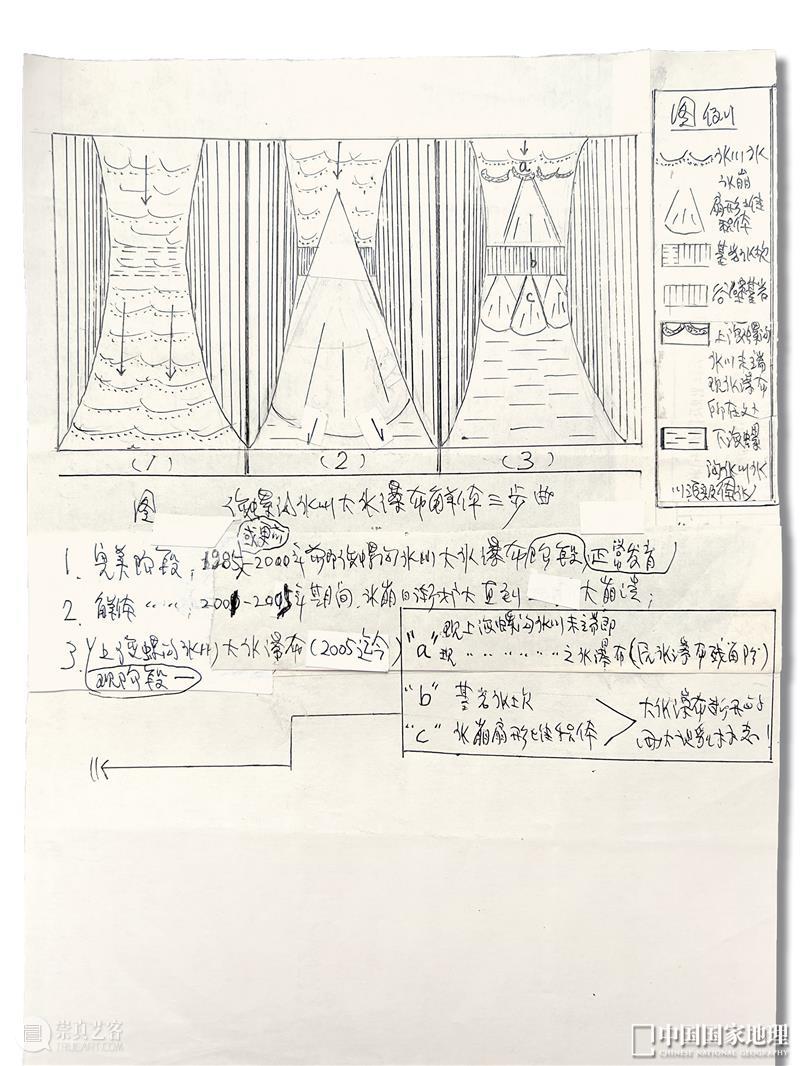 图例
冰川冰
冰崩
扇形堆
积体
基岩冰坎
谷壁基岩
上海螺沟
冰川末端
现冰瀑布
所在处
下海螺
沟冰川冰
a
b
c
(1) (2) (3)
图 海螺沟冰川大冰瀑布解体三步曲
1. 完美阶段, 1985—2000年前即海螺沟冰川大冰瀑布阶段 正常发育
2. 解体……; 2001-2005年期间,冰崩日渐扩大直到 大崩溃;
3. 上海螺沟冰川大冰瀑布(2005迄今)
现阶段—
"a" 现上海螺沟冰川末端即
现………之冰瀑布(后冰瀑布残留阶)
"b" 基岩冰坎
"c" 冰崩扇形堆积体
大冰瀑布
两大地貌标志!
崇真艺客
TRUEART.COM
中国国家地理
CHINESE NATIONAL GEOGRAPHY